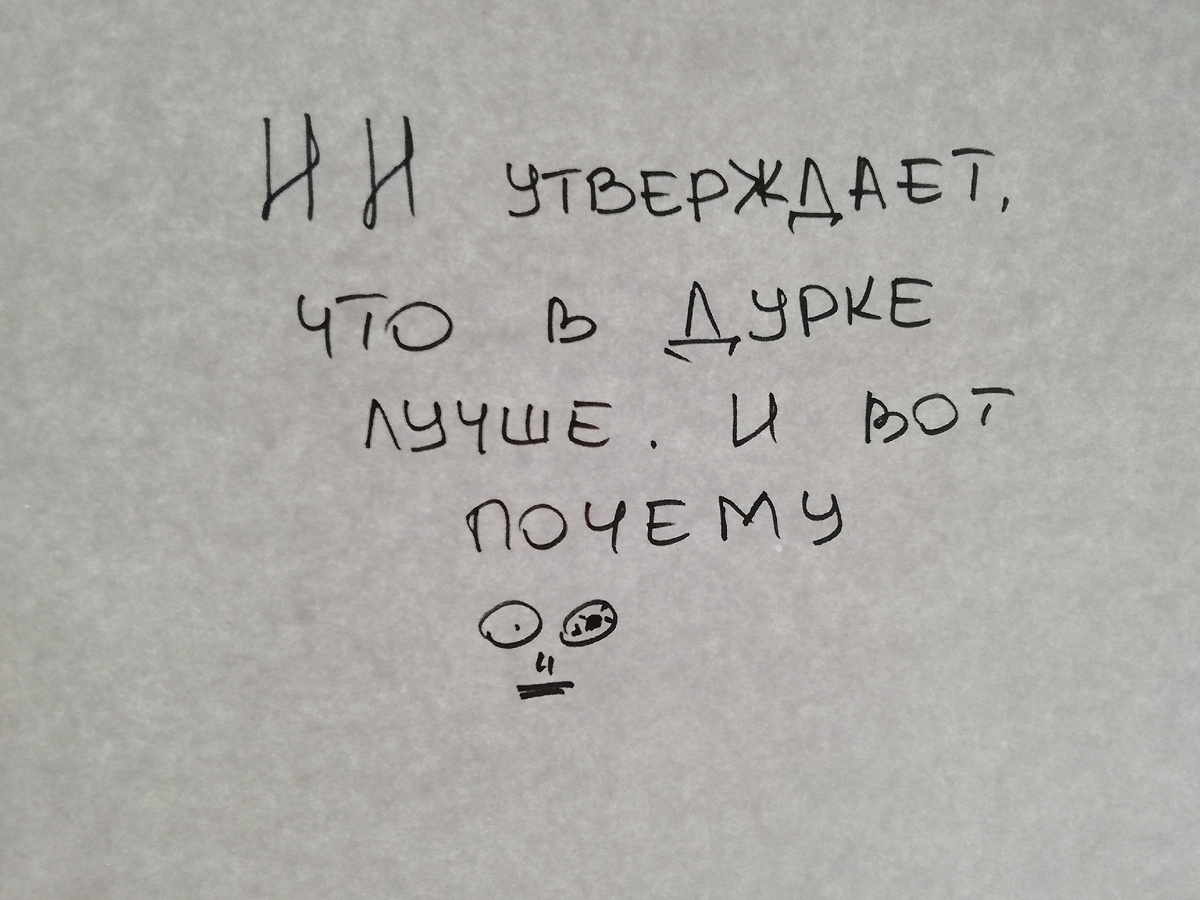 ИИ УТВЕРЖДАЕТ,
ЧТО В ДУРКЕ
ЛУЧШЕ. И ВОТ
ПОЧЕМУ